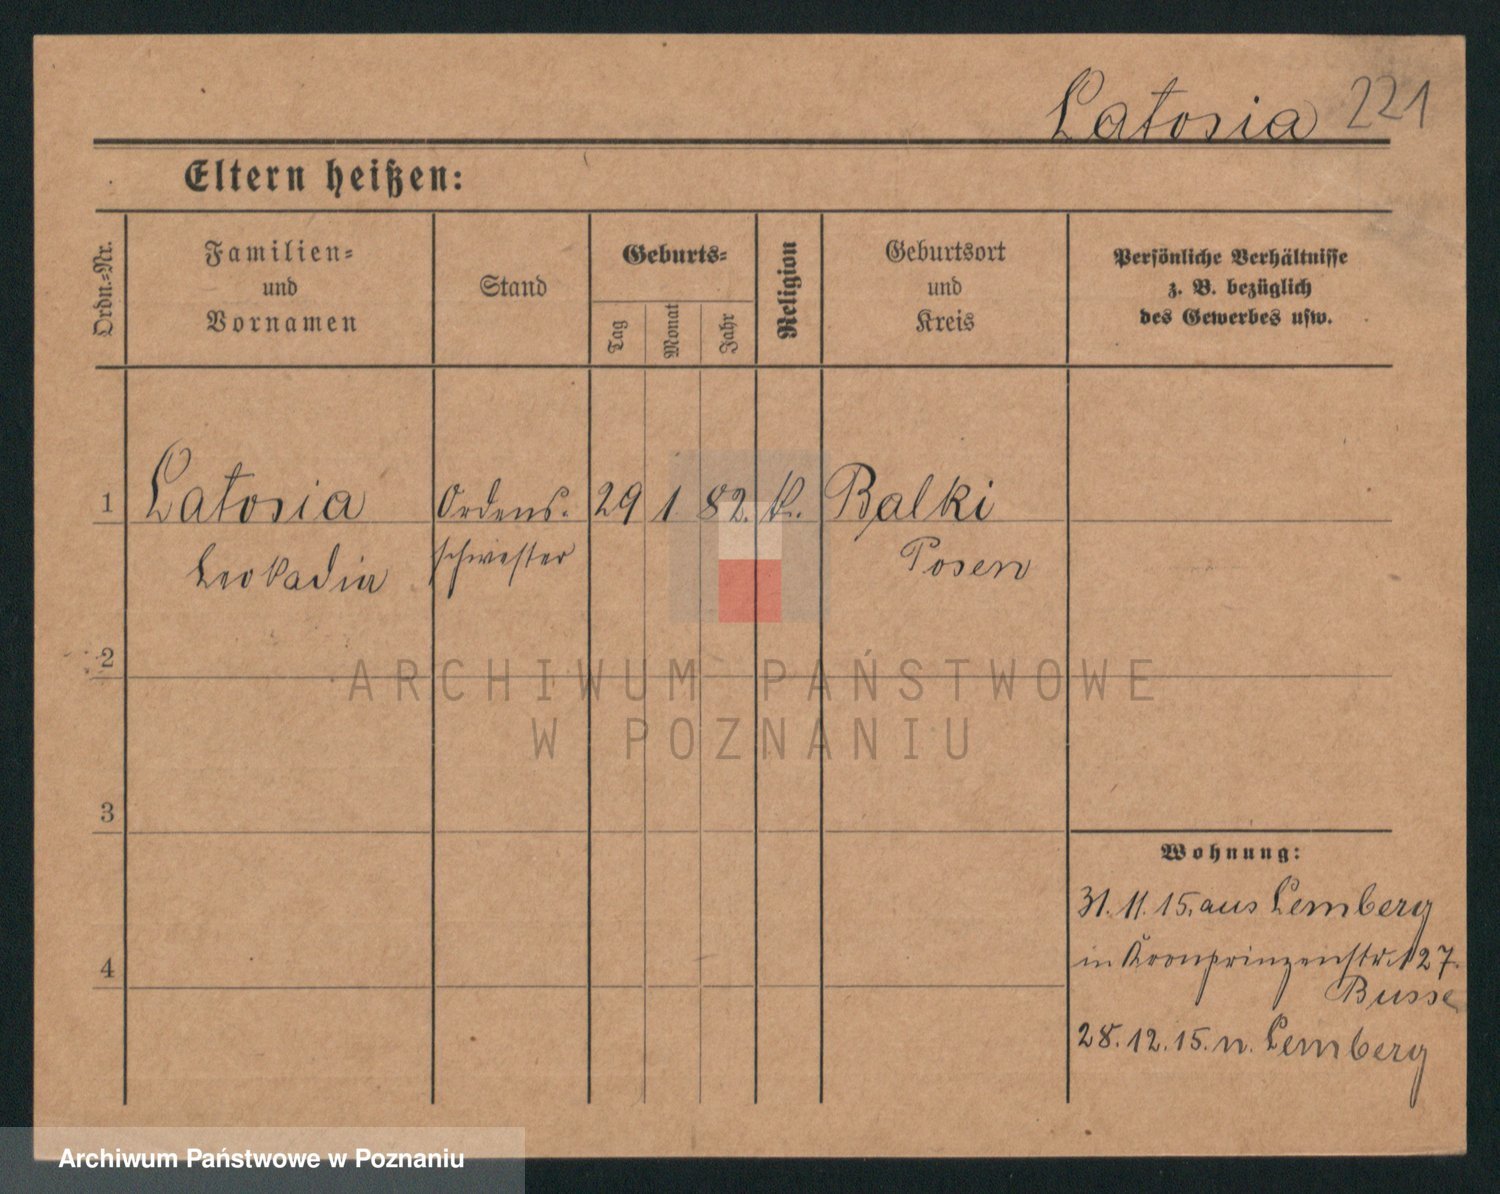 Latosia 221
Eltern heißen:
Ordn.=Nr.
Familien=
und
Vornamen
Stand
Geburts=
Tag
Monat
Jahr
Religion
Geburtsort
und
Kreis
Persönliche Verhältnisse
z. B. bezüglich
des Gewerbes usw.
1 Latosia Ordens- 29 1 82. K. Balki
Leokadia schwester Posen
2
3
4
Wohnung:
31. 11. 15. aus Lemberg
in Kronprinzenstr. 127.
Busse
28. 12. 15. n. Lemberg
ARCHIWUM PAŃSTWOWE
W POZNANIU
Archiwum Państwowe w Poznaniu